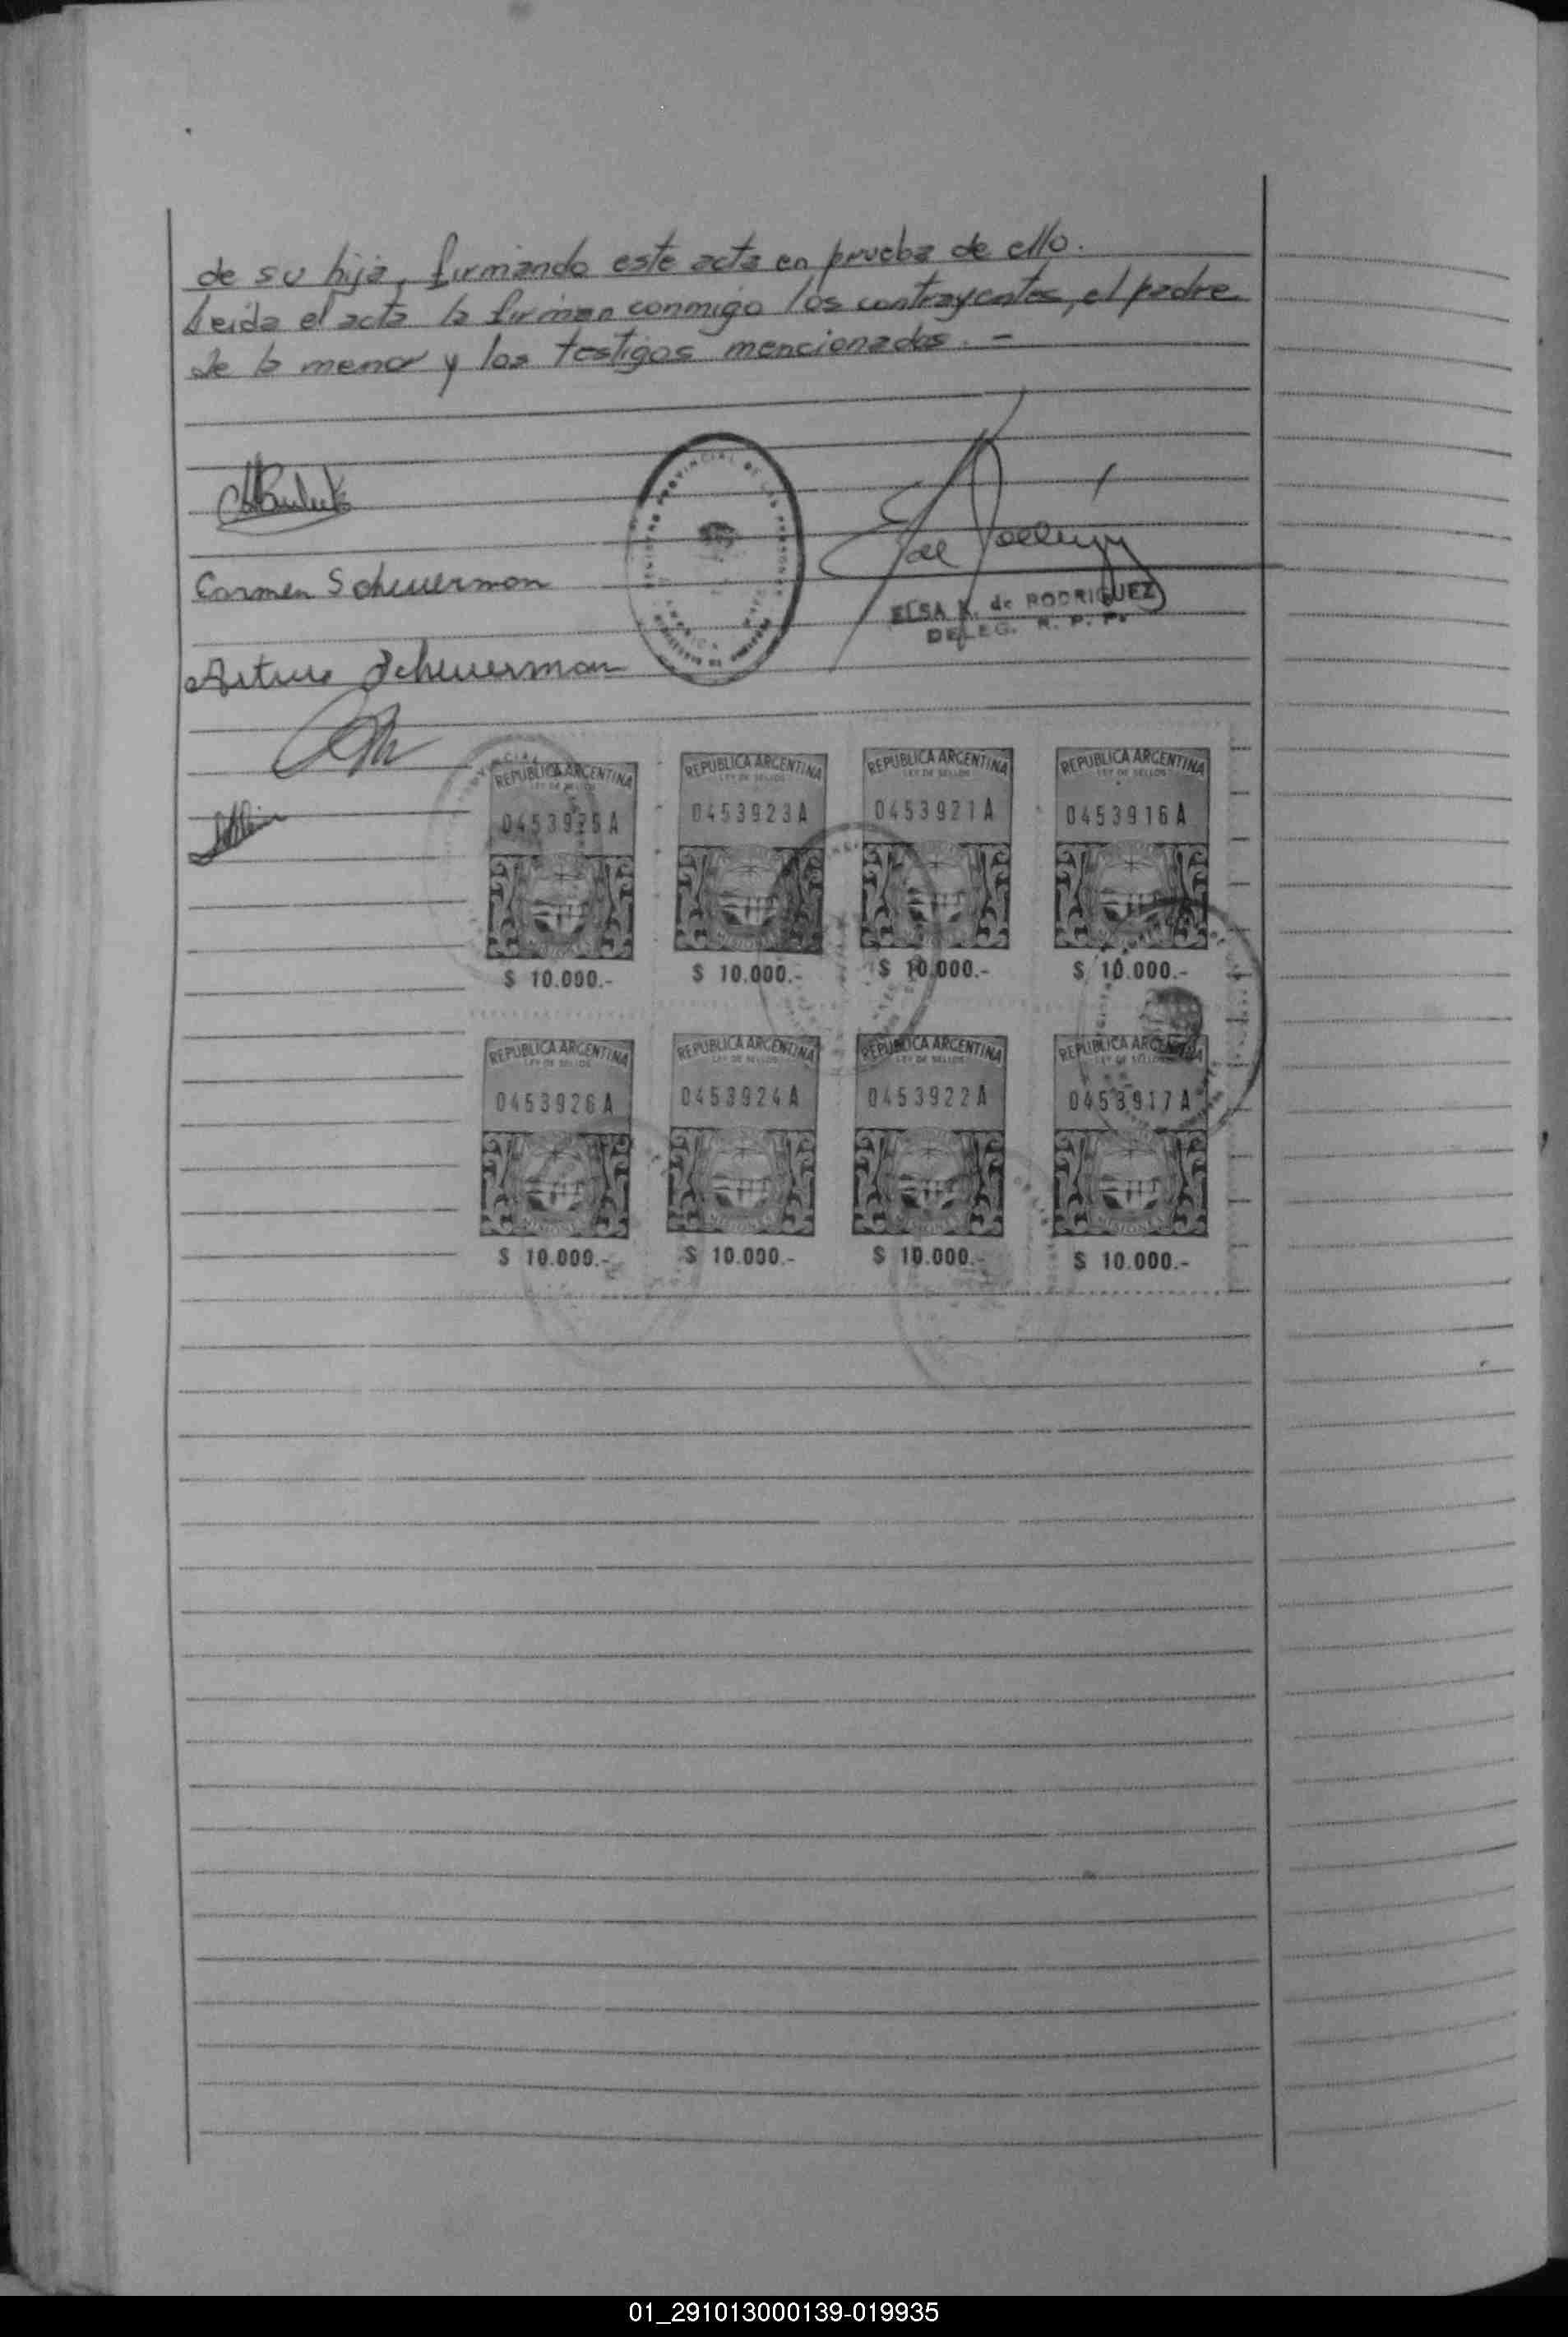 de su hija, firmando este acta en prueba de ello.
Leida el acta la firman conmigo los contrayentes, el padre
de la menor y los testigos mencionados. -
PROVINCIAL DE LAS PERSONAS
Carmen Scheuerman
ELSA K. de RODRIGUEZ
DELEG. R. P. P.
Arturo Scheuerman
REPUBLICA ARGENTINA REPUBLICA ARGENTINA REPUBLICA ARGENTINA REPUBLICA ARGENTINA
LEY DE SELLOS LEY DE SELLOS LEY DE SELLOS LEY DE SELLOS
0453925A 0453923A 0453921A 0453916A
MISIONES
$ 10.000.- $ 10.000.- $ 10.000.- $ 10.000.-
REPUBLICA ARGENTINA REPUBLICA ARGENTINA REPUBLICA ARGENTINA REPUBLICA ARGENTINA
LEY DE SELLOS LEY DE SELLOS LEY DE SELLOS LEY DE SELLOS
0453926A 0453924A 0453922A 0453917A
MISIONES MISIONES MISIONES MISIONES
$ 10.000.- $ 10.000.- $ 10.000.- $ 10.000.-
01_291013000139-019935